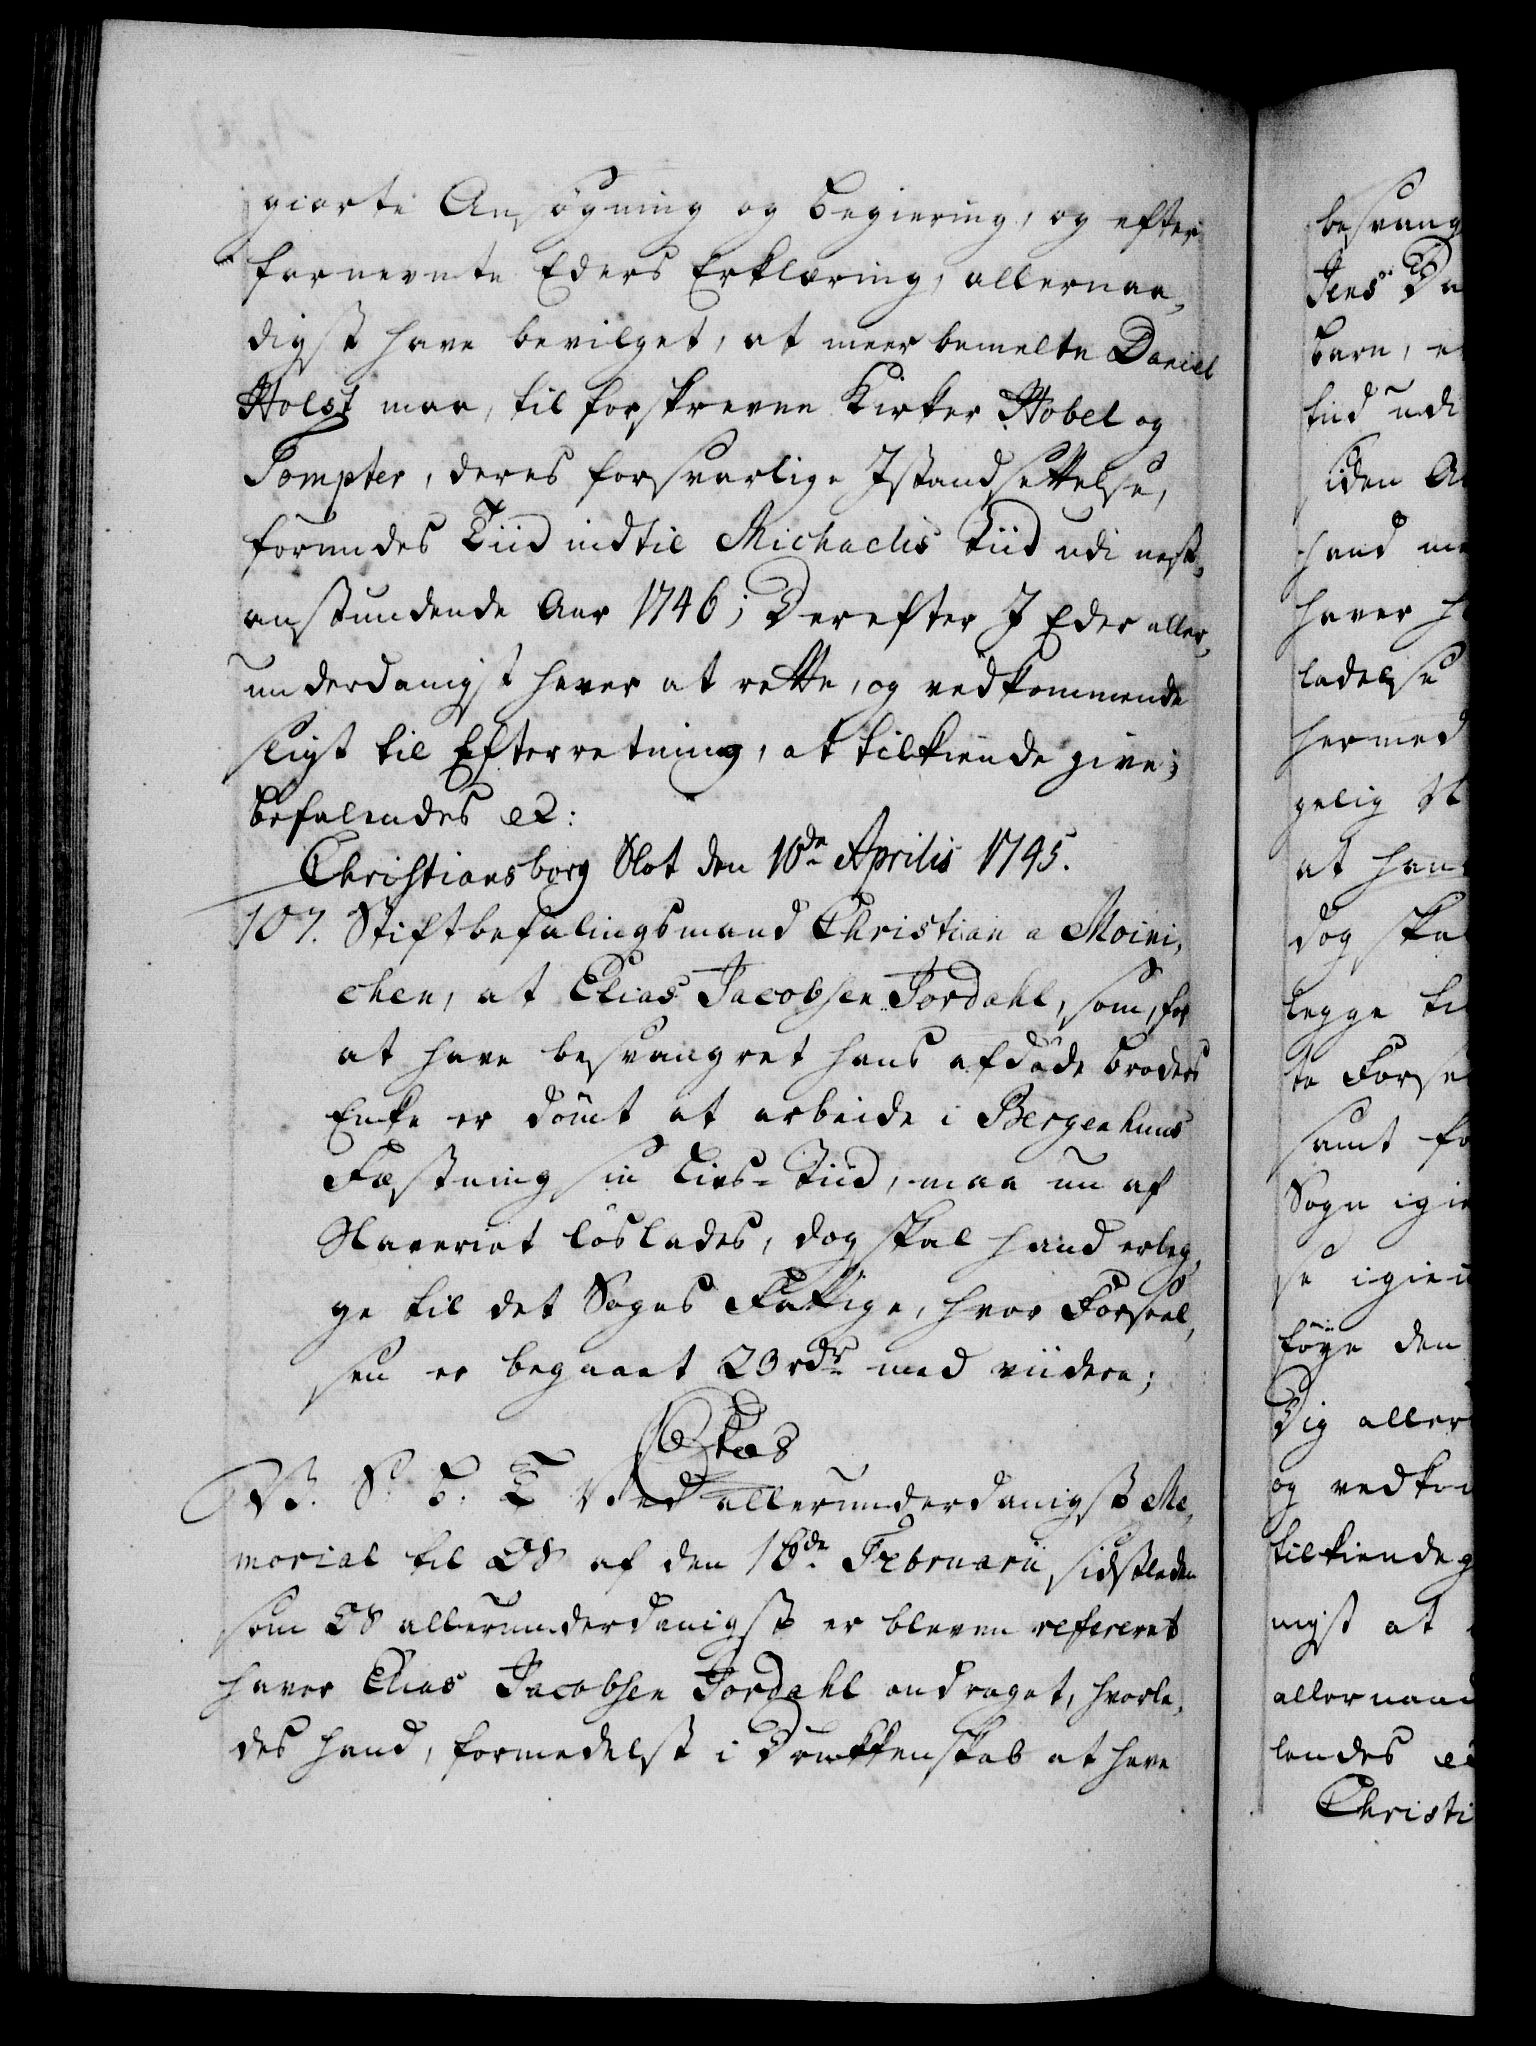 giorte Ansøgning og begiering, og efter
fornevnte Eders Erklæring, allernaa,
digst have bevilget, at meerbemelte Daniel
Holst maa, til forskrevne Kirker Hobel og
Tompter, deres forsvarlige Istandsettelse,
forundes Tiid indtil Michaelis Tiid udi nest,
anstundende Aar 1746; Derefter I Eder aller,
underdanigst haver at rette, og vedkommende
sligt til Efterretning, at tilkiende give;
befalendes etc:
Christiansborg Slot den 10de Aprilis 1745.
107. Stiftbefalingsmand Christian a Moini,
chen, at Elias Jacobsen Jordahl, som, for
at have besvangret hans afdøde broders
Enke er dømt at arbeide i Bergenhuus
Fæstning sin Livs-Tiid, maa nu af
Slaveriet løslades, dog skal hand erleg,
ge til det Sogns Fattige, hvor Forseel,
sen er begaaet 20 rdr med viidere;
CSextus
V. S. G. T Ved allerunderdanigst Me,
morial til OS af den 16de Februarii sidstleden
som OS allerunderdanigst er bleven refereret
haver Elias Jacobsen Jordahl andraget, hvorle,
des hand, formedelst i Drukkenskab at have
besvang
Jens Da
barn, e
tiid udi
siden A
hand me
haver h
ladelse
hermed
gelig N
at han
dog skal
legge til
te Forse
samt fo
Sogn igie
se igien
føye den
Dig aller
og vedkom
tilkiende g
nigst at
allernaad
lendes etc
Christi